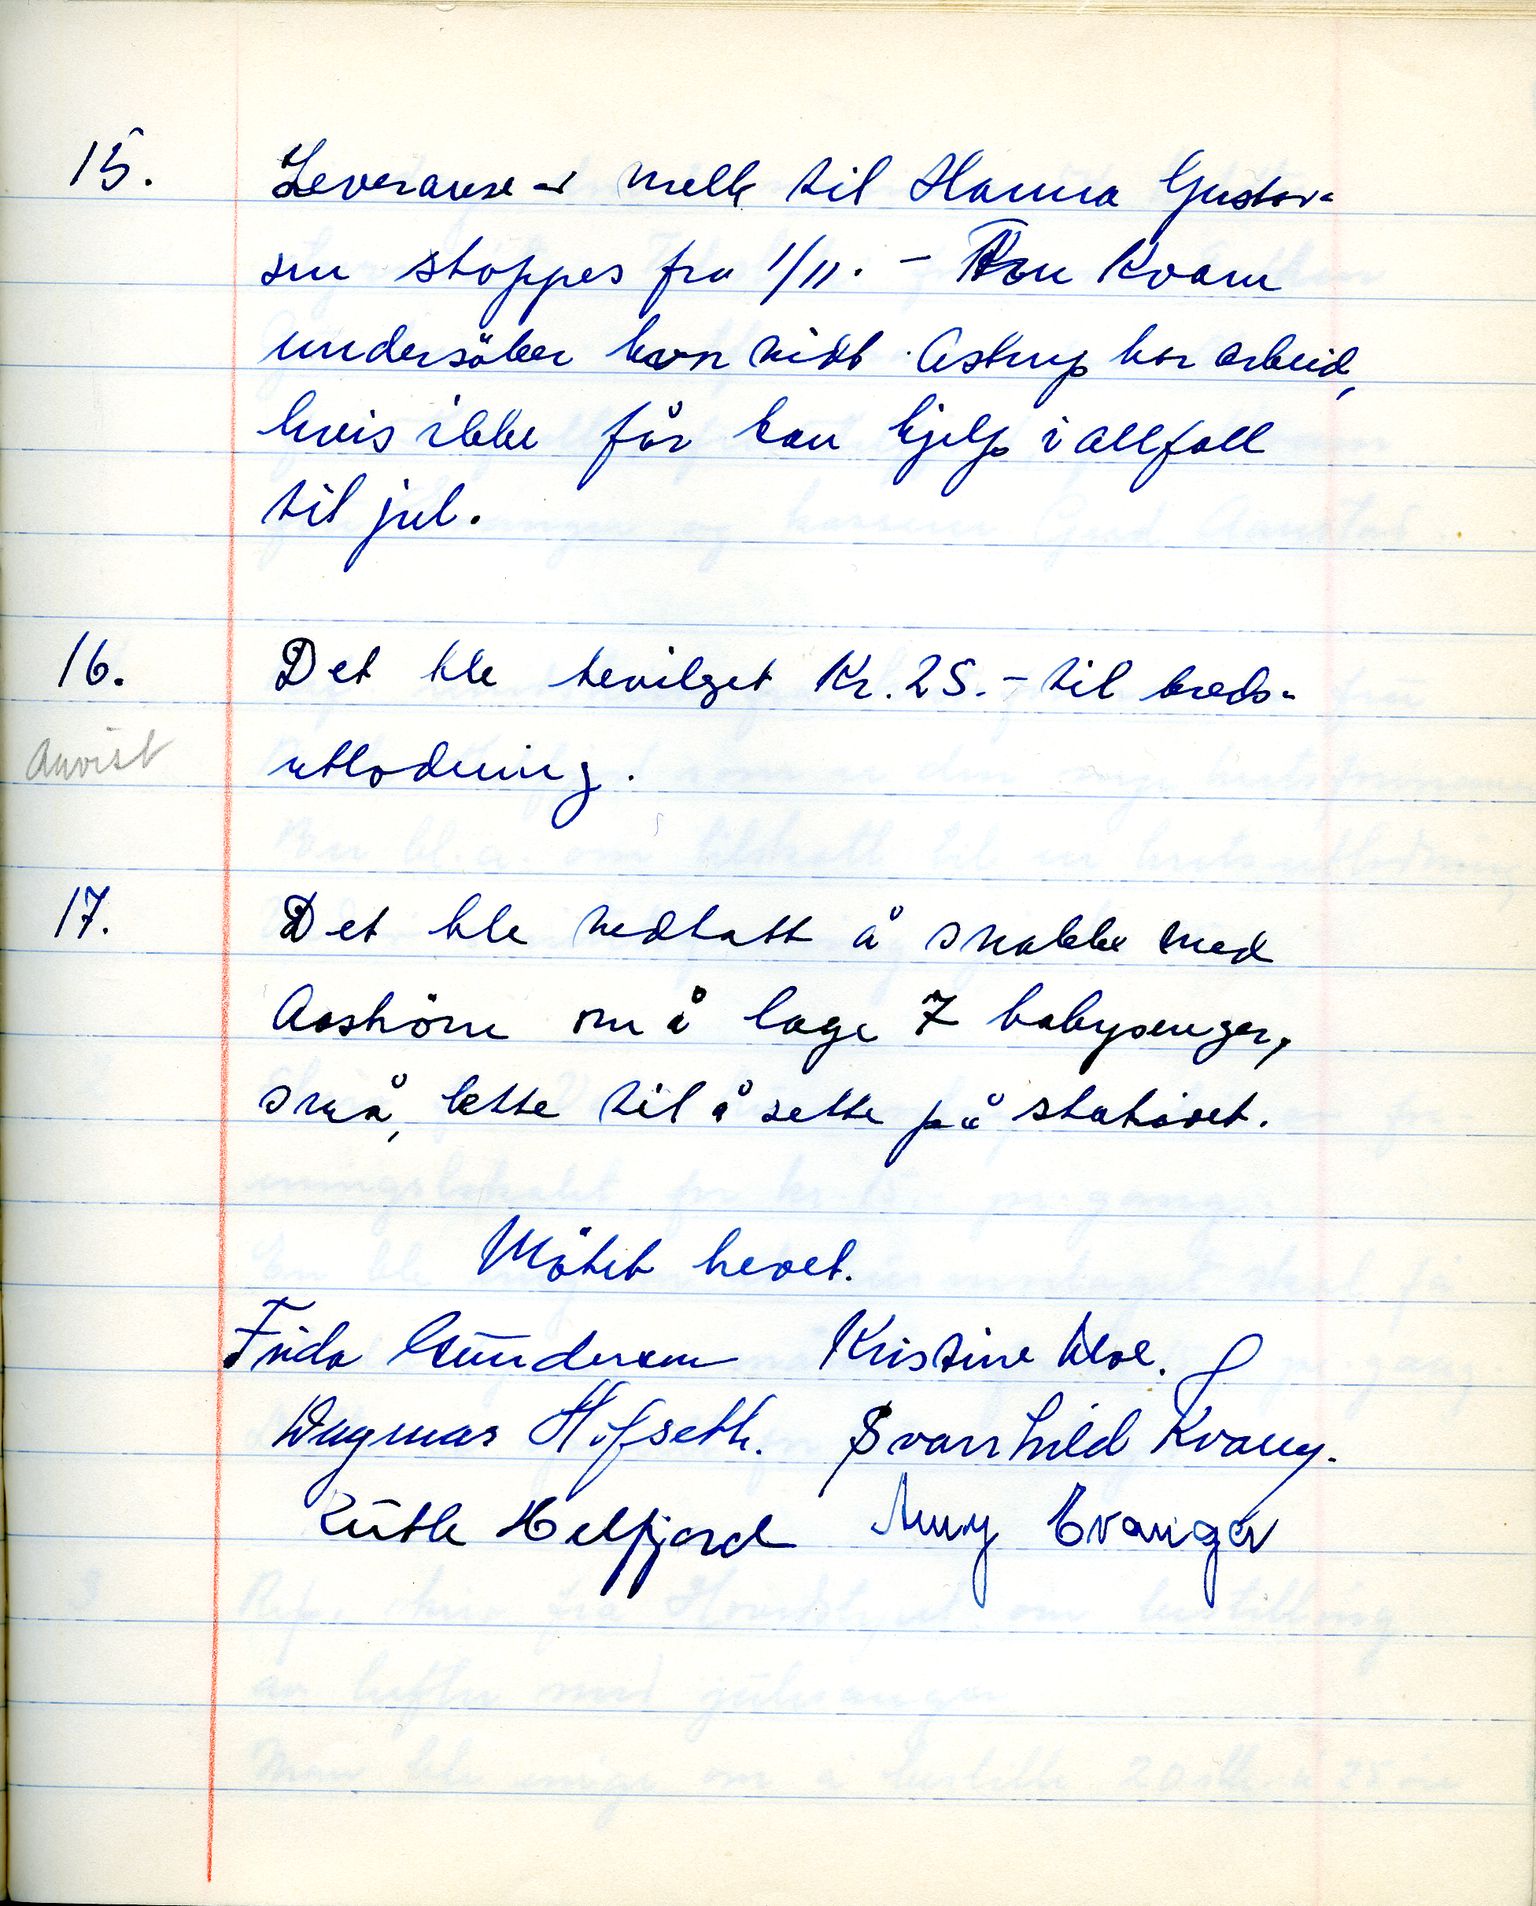 15. Leveranse av melk til Hanna Gustav-
sen stoppes fra 1/11. - Fru Kvam
undersöker hvorvidt Astrup har arbeid,
hvis ikke får han hjelp i allfall
til jul.
16. Det ble bevilget Kr. 25.- til breds-
Anvist utlodning.
17. Det ble vedtatt å snakke med
om å lage 7 babysenger,
små, lette til å sette på stativet.
Mötet hevet.
Frida Gundersen Kristine Moe.
Dagmar Hofseth. Svanhild Kvam.
Ruth Helfjord Amy Evanger